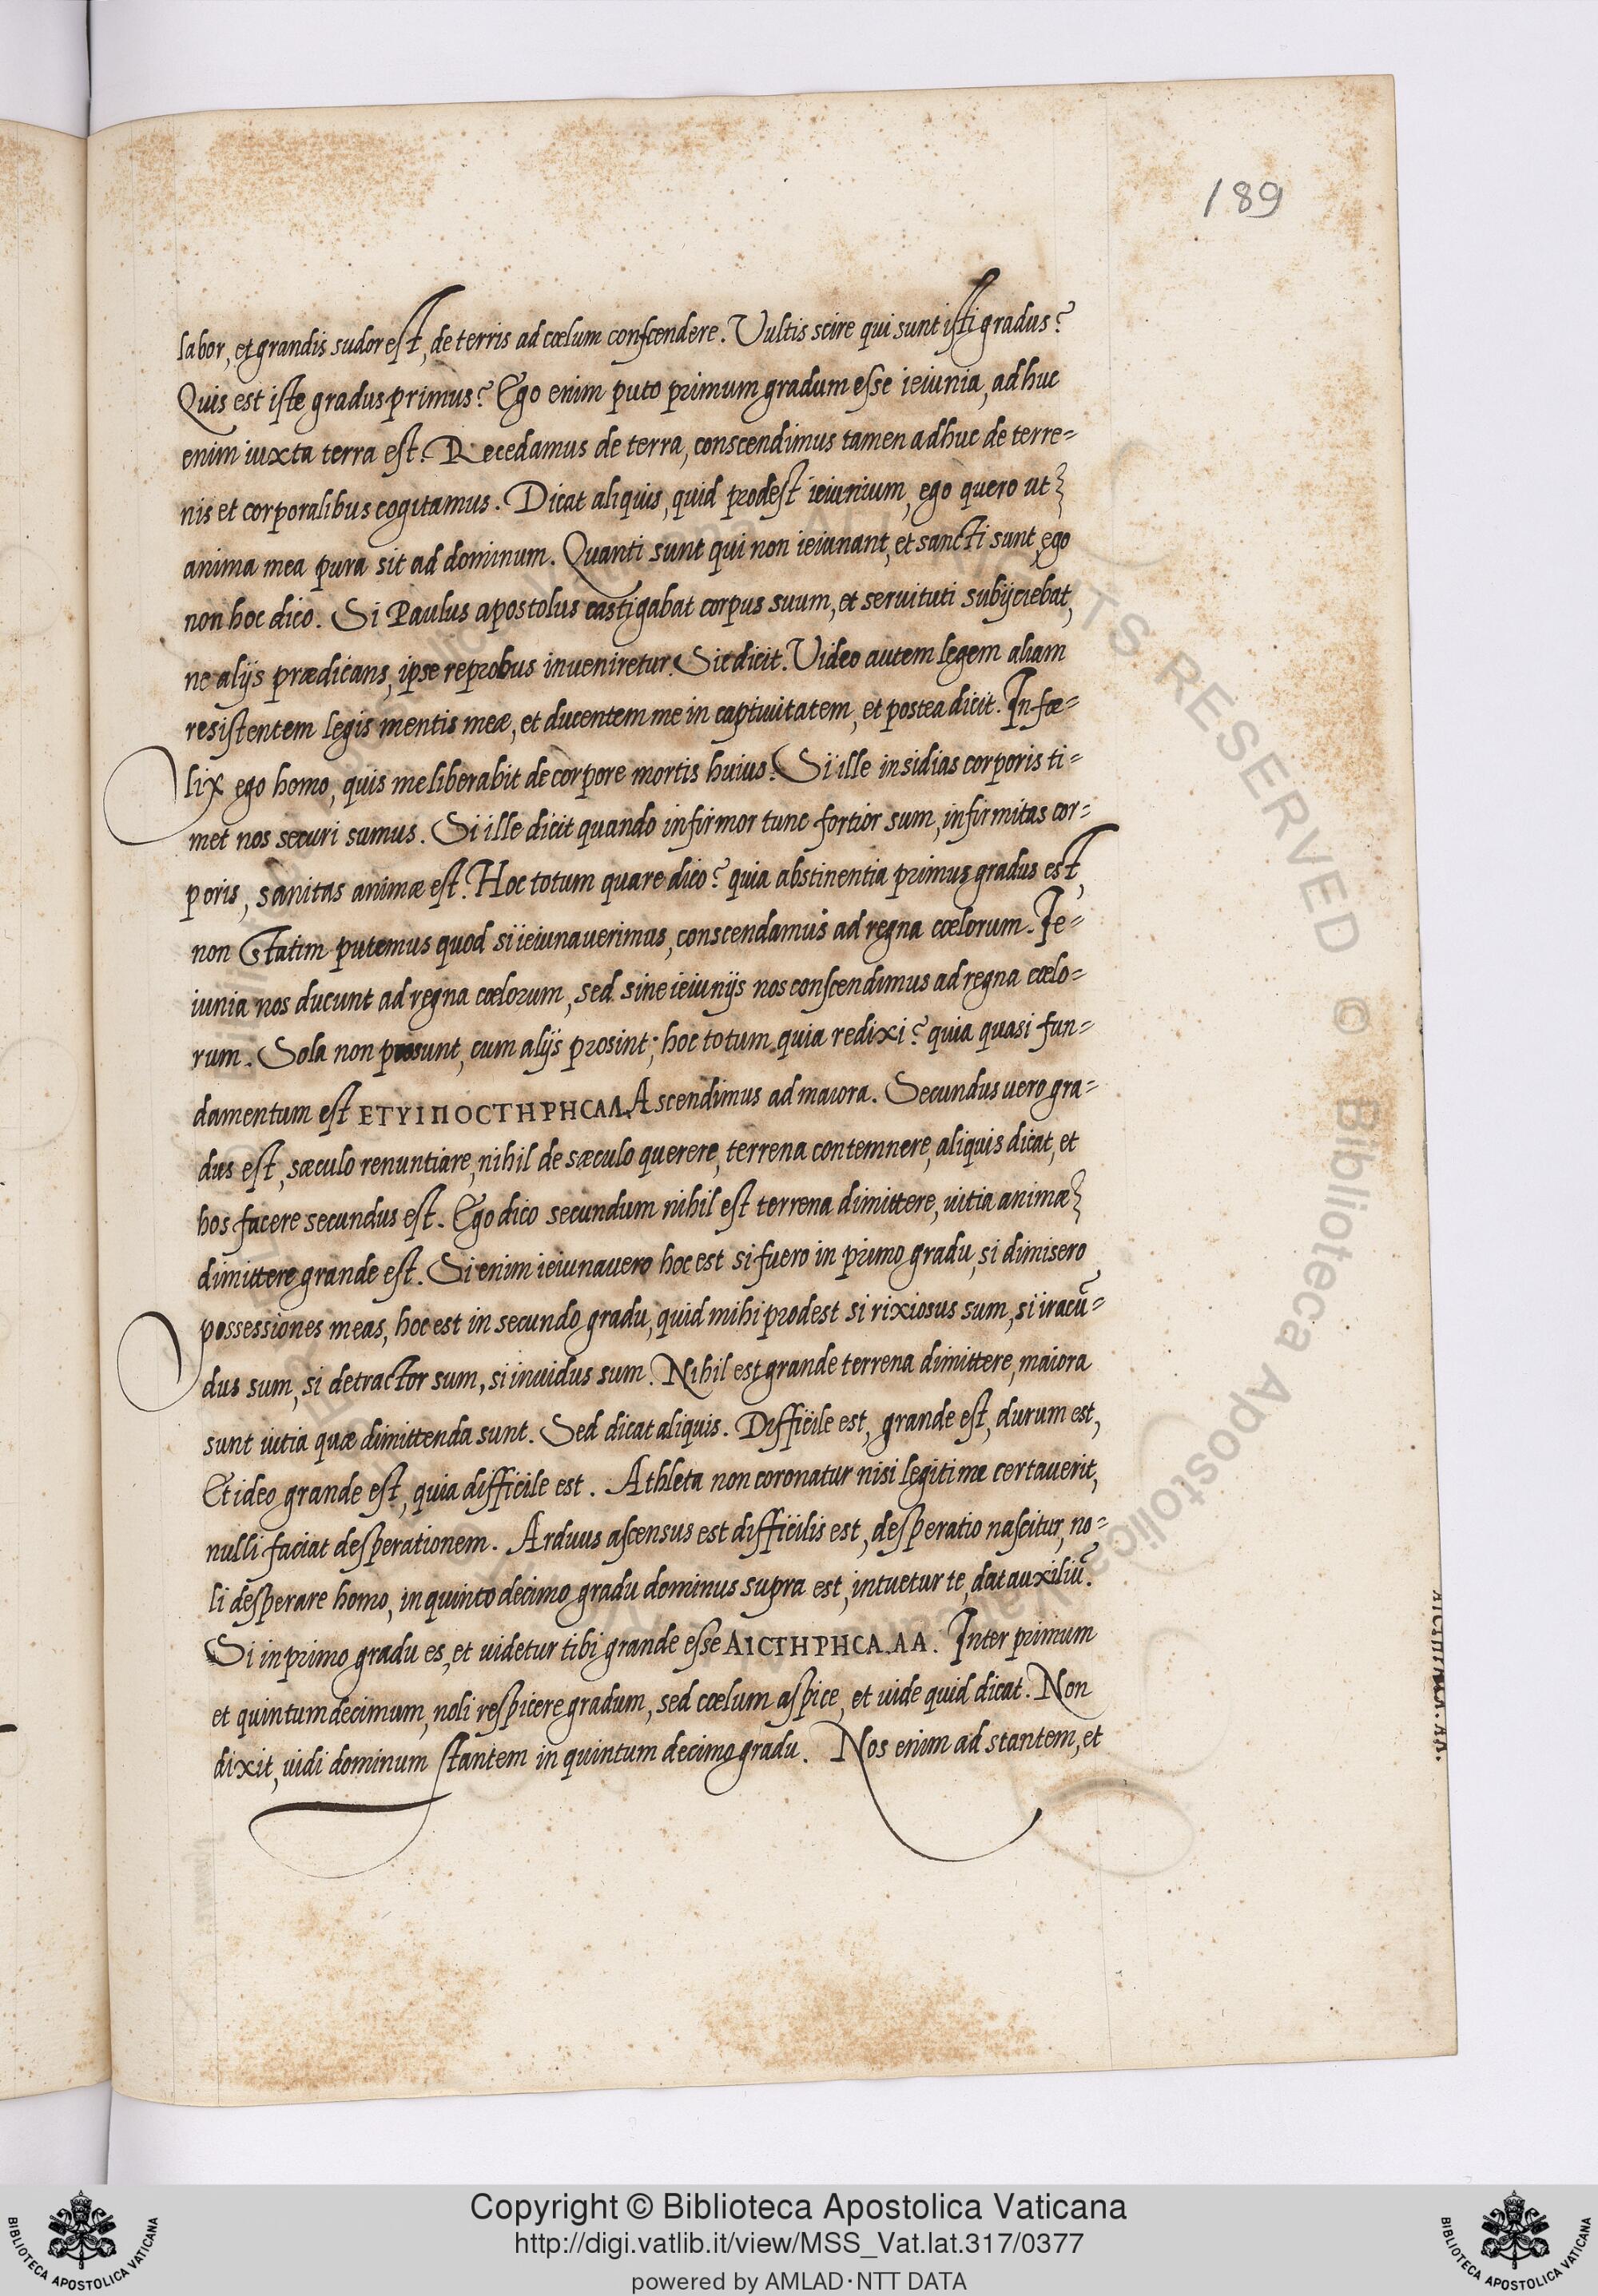 189
labor, et grandis sudor est, de terris ad cœlum conscendere. Vultis scire qui sunt isti gradus?
Quis est iste gradus primus? Ego enim puto primum gradum esse ieiunia, adhuc
enim iuxta terra est. Recedamus de terra, conscendimus tamen adhuc de terre=
nis et corporalibus cogitamus. Dicat aliquis, quid prodest ieiunium, ego quero ut
anima mea pura sit ad dominum. Quanti sunt qui non ieiunant, et sancti sunt, ego
non hoc dico. Si Paulus apostolus castigabat corpus suum, et seruituti subijciebat,
ne alijs prædicans, ipse reprobus inueniretur. Sic dicit. Video autem legem aliam
resistentem legis mentis meæ, et ducentem me in captiuitatem, et postea dicit. Infœ=
lix ego homo, quis me liberabit de corpore mortis huius? Si ille insidias corporis ti=
met nos securi sumus. Si ille dicit quando infirmor tunc fortior sum, infirmitas cor=
poris, sanitas animæ est. Hoc totum quare dico? quia abstinentia primus gradus est,
non statim putemus quod si ieiunauerimus, conscendamus ad regna cœlorum. Ie=
iunia nos ducunt ad regna cœlorum, sed sine ieiunijs nos conscendimus ad regna cœlo=
rum. Sola non prosunt, cum alijs prosint; hoc totum quia redixi? quia quasi fun=
damentum est ΕΤΥΙΠΟCΤΗΡΗCΑΛ. Ascendimus ad maiora. Secundus uero gra=
dus est, sæculo renuntiare, nihil de sæculo querere, terrena contemnere, aliquis dicat, et
hos facere secundus est. Ego dico secundum nihil est terrena dimittere, uitia animæ
dimittere grande est. Si enim ieiunauero hoc est si fuero in primo gradu, si dimisero
possessiones meas, hoc est in secundo gradu, quid mihi prodest si rixiosus sum, si iracū=
dus sum, si detractor sum, si inuidus sum. Nihil est grande terrena dimittere, maiora
sunt uitia quæ dimittenda sunt. Sed dicat aliquis. Difficile est, grande est, durum est,
Et ideo grande est, quia difficile est. Athleta non coronatur nisi legitime certauerit,
nulli faciat desperationem. Arduus ascensus est difficilis est, desperatio nascitur, no=
li desperare homo, in quinto decimo gradu dominus supra est, intuetur te, dat auxiliū.
Si in primo gradu es, et uidetur tibi grande esse ΑΙCΤΗΡΗCΑ.ΛΑ. Inter primum
et quintumdecimum, noli respicere gradum, sed cœlum aspice, et uide quid dicat. Non
dixit, uidi dominum stantem in quintum decimo gradu. Nos enim ad stantem, et
RIGHTS RESERVED © Biblioteca Apostolica Vaticana
Copyright © Biblioteca Apostolica Vaticana
http://digi.vatlib.it/view/MSS_Vat.lat.317/0377
powered by AMLAD·NTT DATA
BIBLIOTECA APOSTOLICA VATICANA
BIBLIOTECA APOSTOLICA VATICANA